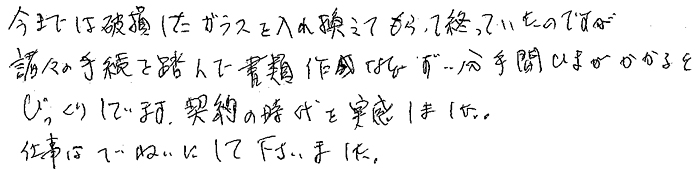 今までは破損したガラスを入れ換えてもらって終っていたのですが
諸々の手続を踏んで書類作成などずい分手間ひまがかかると
びっくりしています。契約の時代を実感しました。
仕事はていねいにして下さいました。